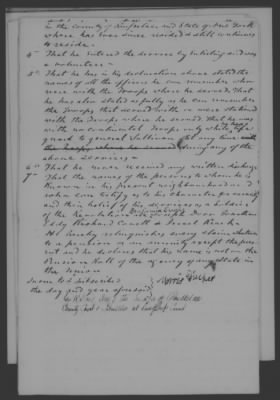 in the County of and State of New York
where he has ever since resided & still continues
to reside.
4th That he entered the service by enlisting and was
a volunteer.
5th That he has in his declaration above stated the
names of all the officers he can remember who
were with the Troops where he served. That he
has also stated as fully as he can remember
the Troops that served with or were stationed
with the Troops where he served. That he was
with no continental Troops only while
guard to General Sullivan
during any of the
above services.
6th That he never received any written discharge
7 That the names of the persons to whom he is
known in his present neighbourhood and
who can testify as to his character for veracity
and their belief of his services as a soldier
of the Revolution Joseph Dean Jonathan
Eddy Richard
He hereby relinquishes every claim whatever
to a pension or an annuity except the present
and he declares that his name is not on the
Pension Roll of the agency of any state in
the Union
Sworn to & subscribed
the day and year aforesaid